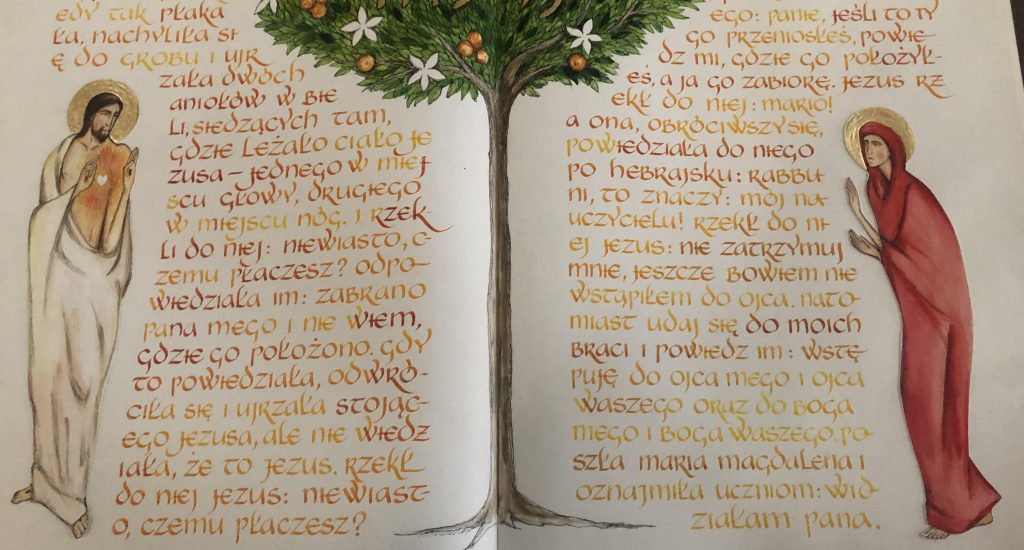 edy tak płaka
ła, nachyliła si
ę do grobu i ujr
zała dwóch
aniołów w bie
li, siedzących tam,
gdzie leżało ciało je
zusa – jednego w miej
scu głowy, drugiego
w miejscu nóg. i rzek-
li do niej: niewiasto, c-
zemu płaczesz? odpo-
wiedziała im: zabrano
pana mego i nie wiem,
gdzie go położono. gdy
to powiedziała, odwró-
ciła się i ujrzała stojąc-
ego jezusa, ale nie wiedz
iała, że to jezus. rzekł
do niej jezus: niewiast-
o, czemu płaczesz?
ego: panie, jeśli to ty
go przeniosłeś, powie-
dz mi, gdzie go położył-
eś, a ja go zabiorę. jezus rz
ekł do niej: mario!
a ona, obróciwszy się,
powiedziała do niego
po hebrajsku: rabbu
ni, to znaczy: mój na-
uczycielu! rzekł do ni
ej jezus: nie zatrzymuj
mnie, jeszcze bowiem nie
wstąpiłem do ojca. nato-
miast udaj się do moich
braci i powiedz im: wstę-
puję do ojca mego i ojca
waszego oraz do boga
mego i boga waszego. po-
szła maria magdalena i
oznajmiła uczniom: wid-
ziałam pana.